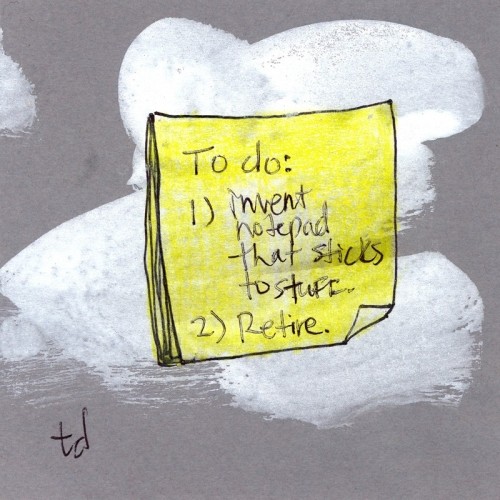 To do:
1) invent
notepad
that sticks
to stuff.
2) Retire.
td